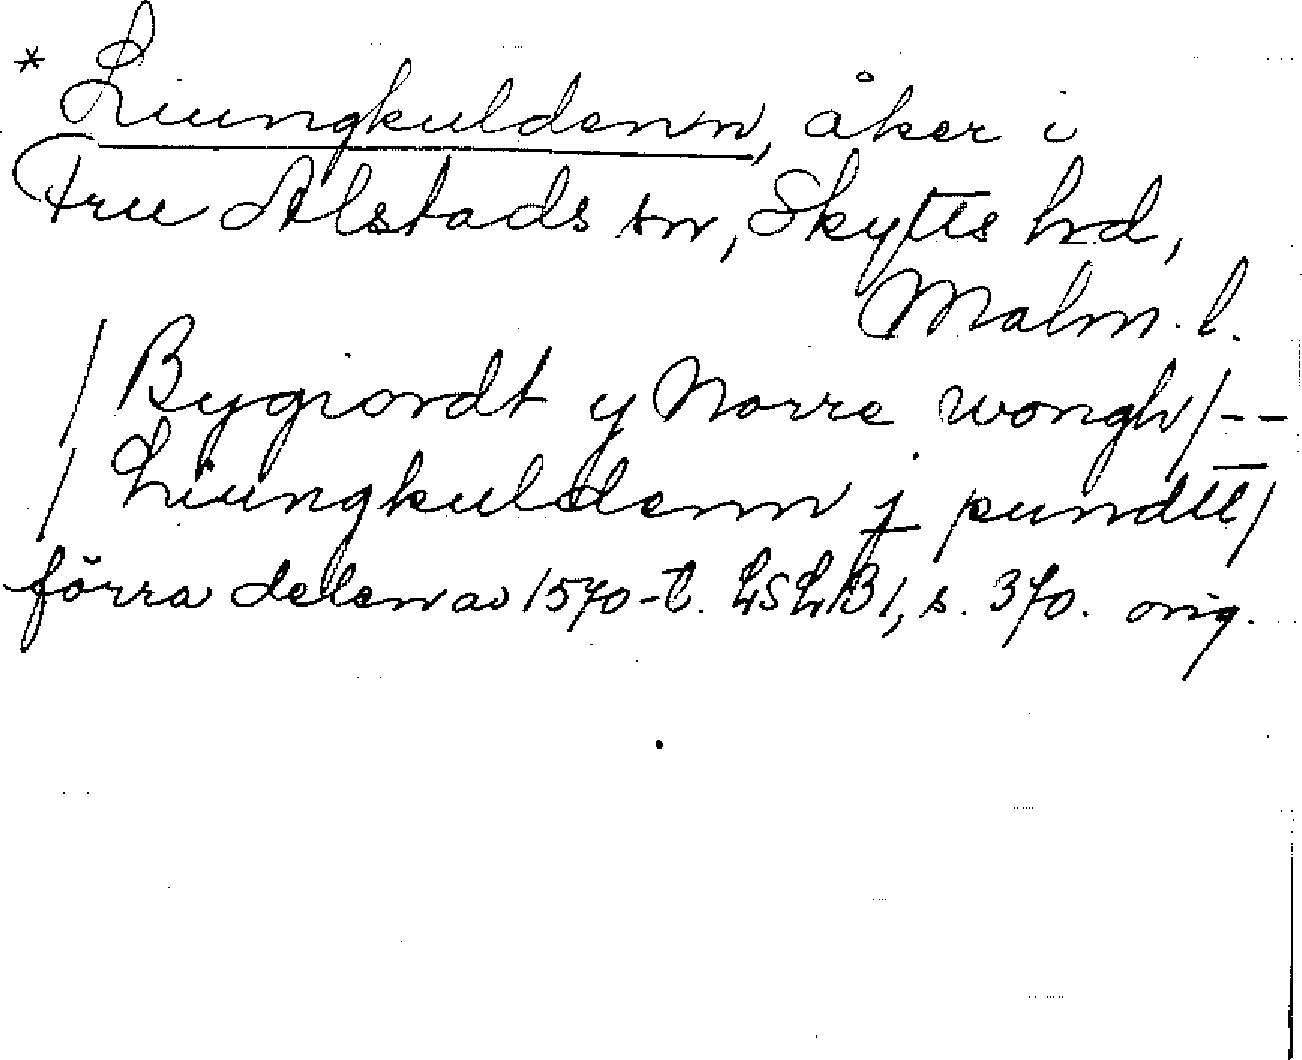 * Liungkuldenn, åker i
Fru Alstads sn, Skytts hd,
Malm. l.
/ Bygiordt y Norre wongh / - -
/ Liungkuldenn j pundtt /
förra delen av 1570-t. LSLB 1, s. 370. orig.